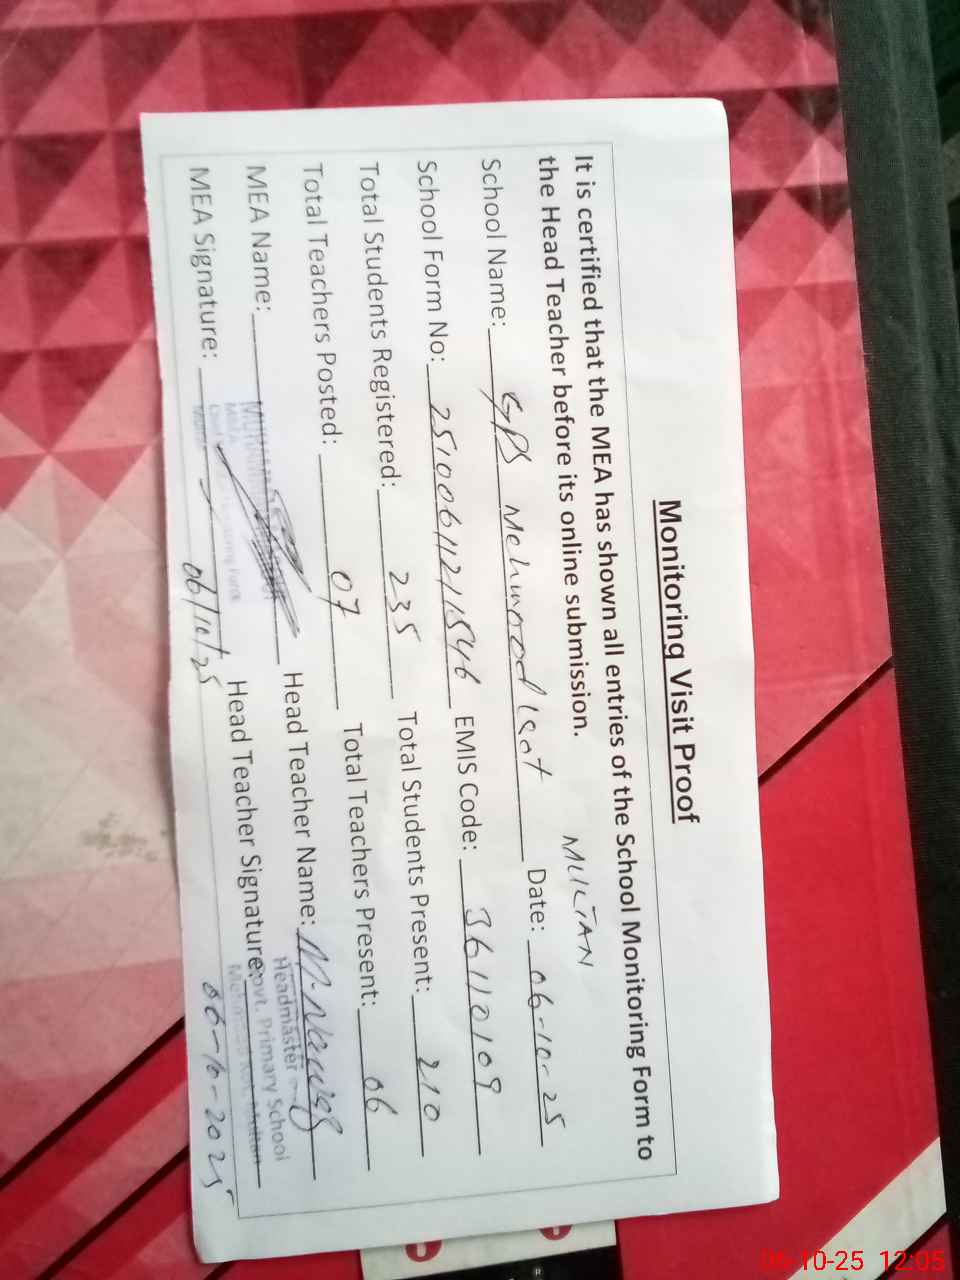 Monitoring Visit Proof
It is certified that the MEA has shown all entries of the School Monitoring Form to
the Head Teacher before its online submission.
MULTAN
School Name: GPS Mehmood Kot Date: 06-10-25
School Form No: 25100611211546 EMIS Code: 36110109
Total Students Registered: 235 Total Students Present: 210
Total Teachers Posted: 07 Total Teachers Present: 06
MEA Name: Head Teacher Name: M. Nawaz
Headmaster
MEA Signature: 06/10/25 Head Teacher Signature:
Govt. Primary School
Multan
06-10-2025
06-10-25 12:05